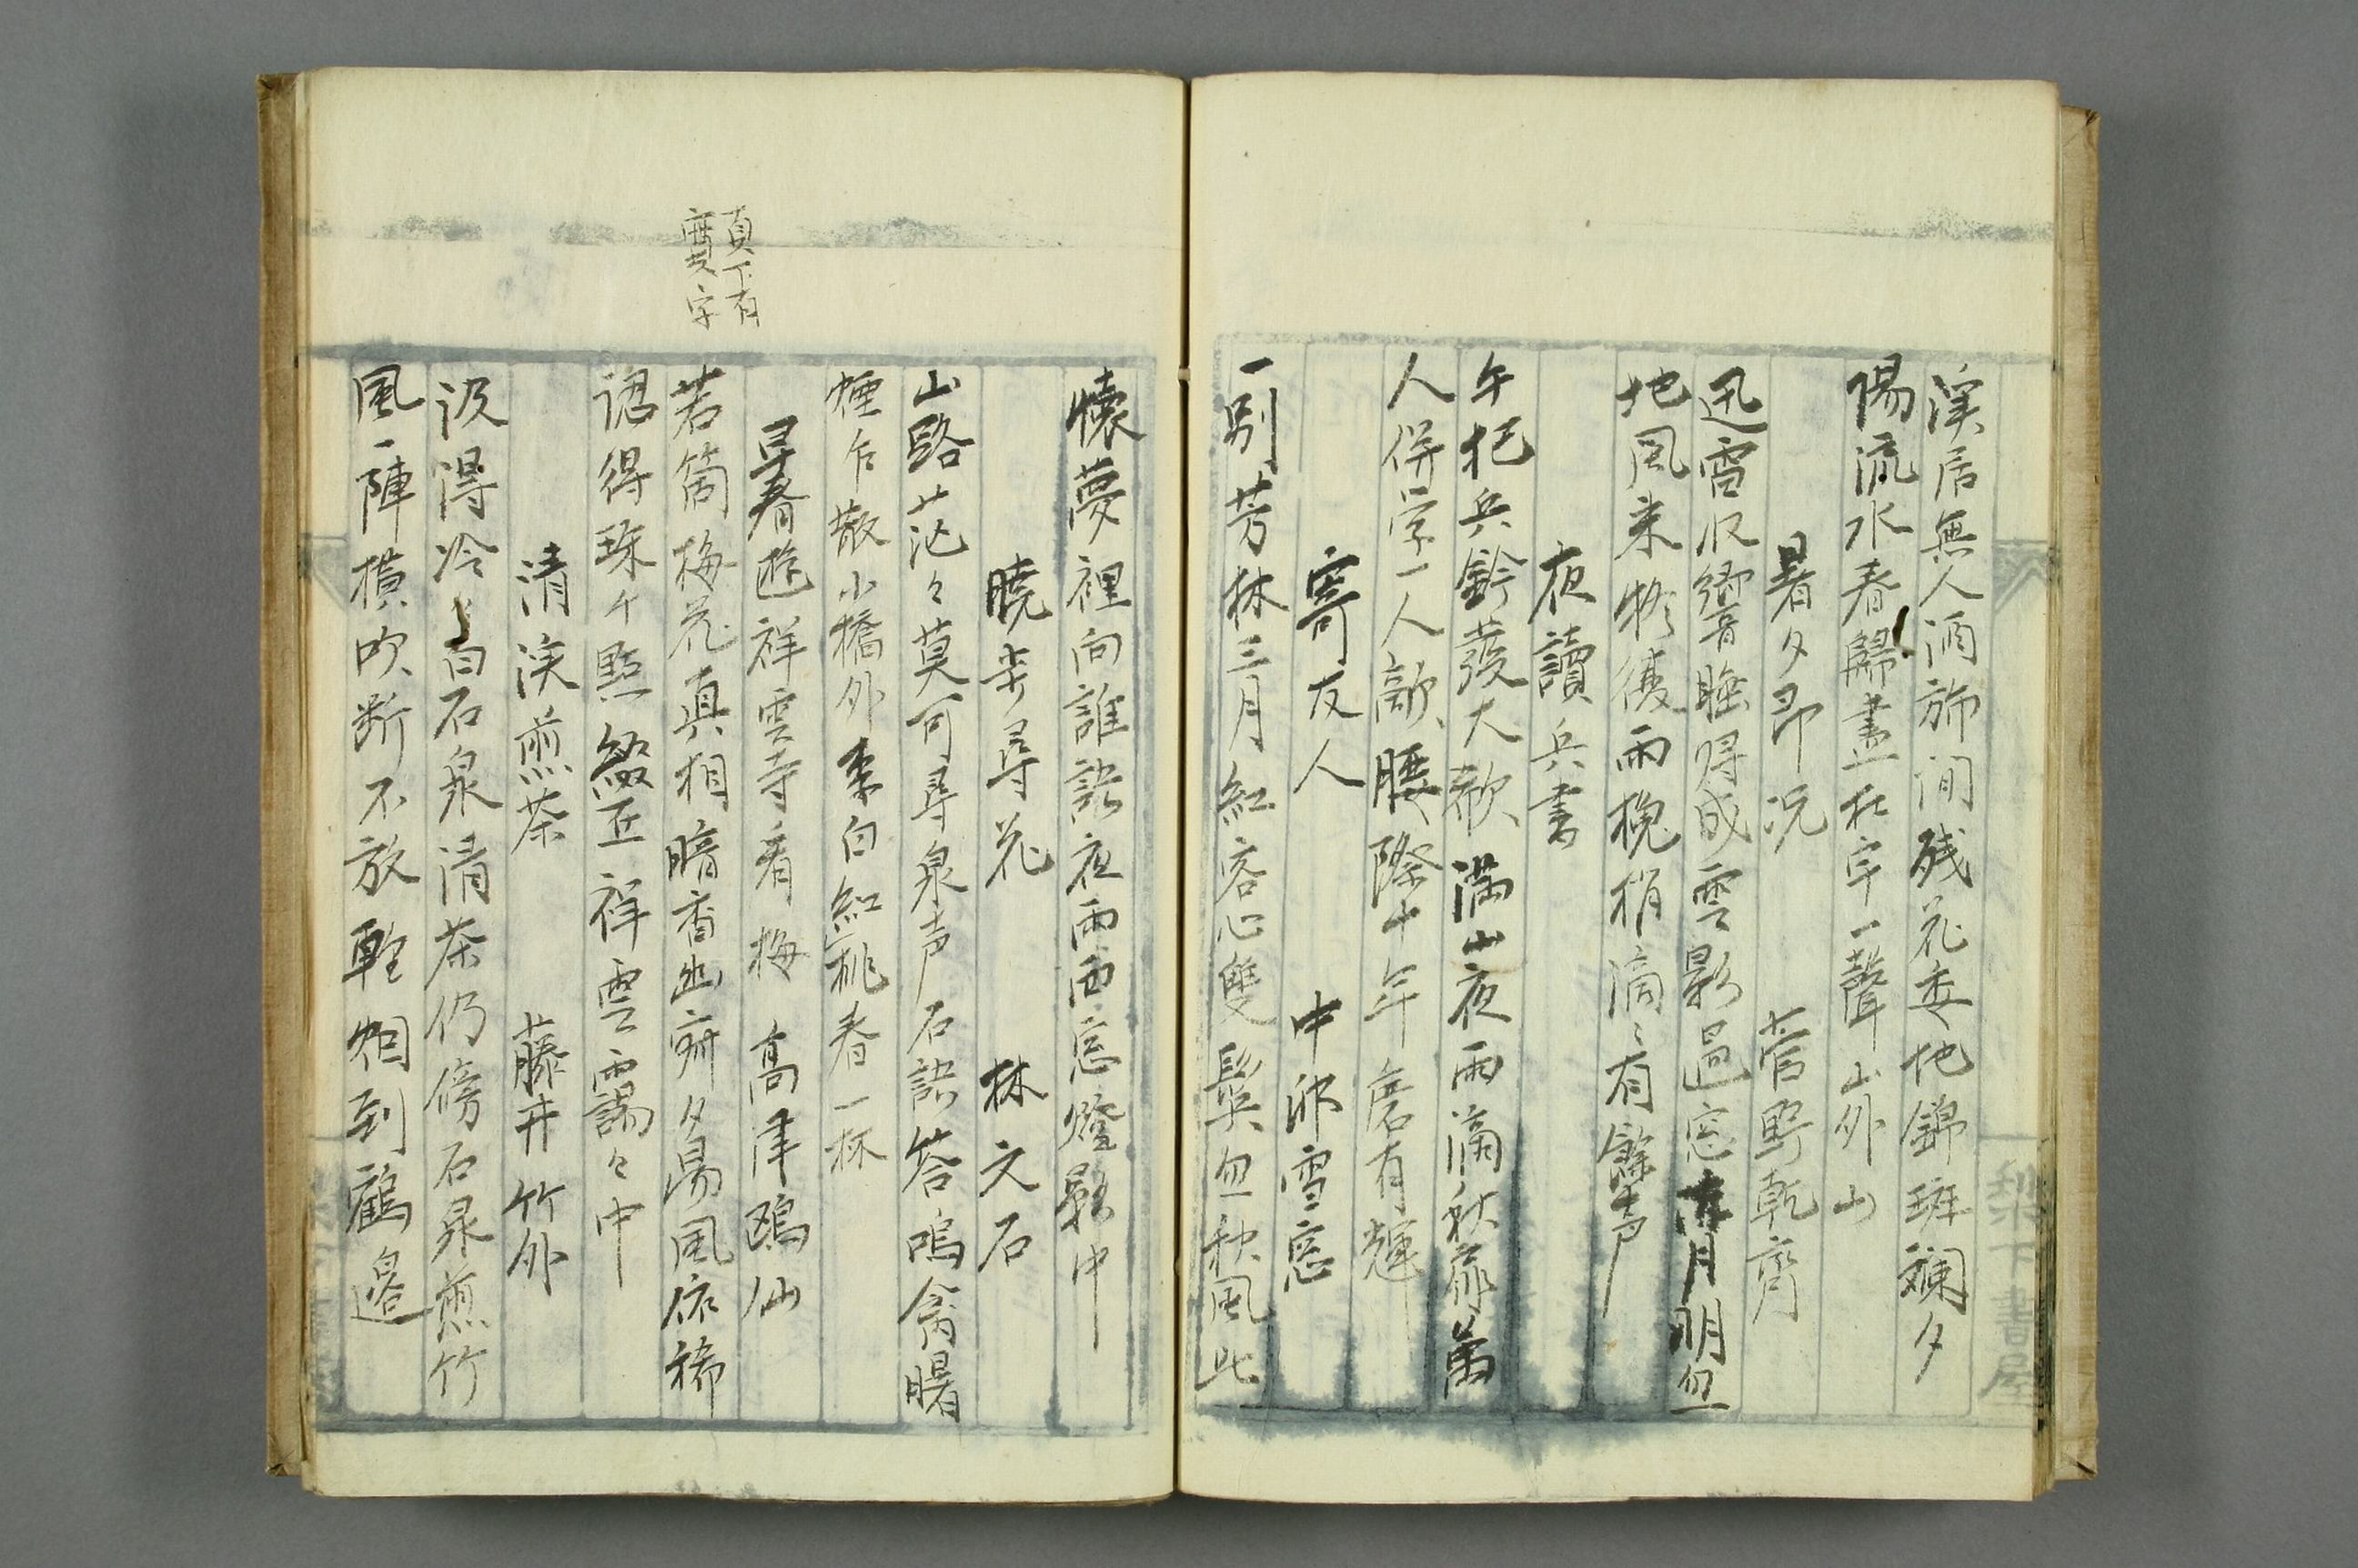 溪居無人酒斾閒残花委地錦斑斕夕
陽流水春歸盡杜宇一聲山外山
暑夕即況 菅野乾齋
迅雷収響睡得成雲影過窓月明忽
地風来物後雨槐梢滴々有餘声
夜讀兵書
午把兵鈴發大歎満山夜雨滴秋扉萬
人併学一人敵腰際十年磨有輝
寄友人 中沢雪窓
一別芳林三月紅客心雙鬢忽秋風此
懐夢裡向誰訴夜雨西窓燈影中
暁歩尋花 林文石
山路茫々莫可尋泉声石訣答鳴禽曙
煙乍散小橋外李白紅桃春一林
尋春遊祥雲寺看梅 高津鴎仙
若箇梅花真相暗香幽研夕陽風依稀
認得珠々點綴匠祥雲靄々中
真下有
賈字
清渓煎茶 藤井竹外
汲得冷々白石泉清茶仍傍石泉煎竹
風一陣横吹断不放軽烟到鶴邊
梨下書屋